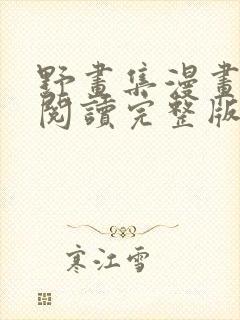 野畫集漫畫
閱讀完整版
寒江雪